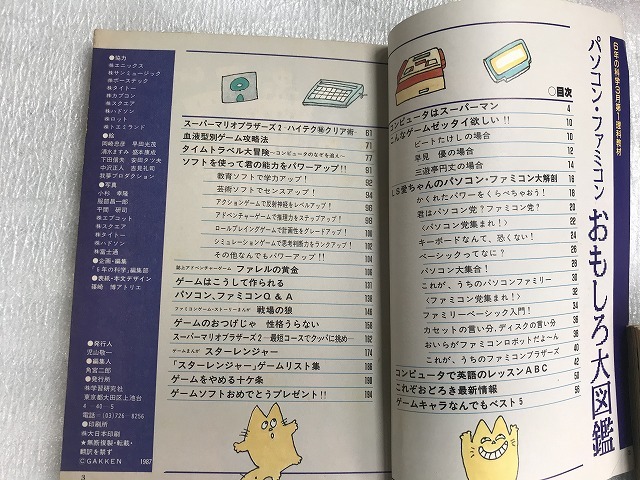 6年の科学3月第1理科教材
パソコン・ファミコン おもしろ大図鑑
○目次
コンピュータはスーパーマン 4
こんなゲームゼッタイ欲しい!! 10
ビートたけしの場合 10
早見 優の場合 12
三遊亭円丈の場合 14
LS愛ちゃんのパソコン・ファミコン大解剖 16
かくれたパワーをくらべちゃおう! 18
君はパソコン党?ファミコン党? 20
〈パソコン党集まれ!〉 22
キーボードなんて、恐くない! 22
ベーシックってなに? 24
パソコン大集合! 26
これが、うちのパソコンファミリー 28
〈ファミコン党集まれ!〉 30
ファミリーベーシック入門! 30
カセットの言い分、ディスクの言い分 32
おいらがファミコンロボットだよ〜ん
これが、うちのファミコンブラザーズ
コンピュータで英語のレッスンABC
これぞおどろき最新情報 50
ゲームキャラなんでもベスト5 56
スーパーマリオブラザーズ2-ハイテク㊙クリア術- 61
血液型別ゲーム攻略法 71
タイムトラベル大冒険〜コンピュータのなぞを追え〜 77
ソフトを使って君の能力をパワーアップ!! 91
教育ソフトで学力アップ! 92
芸術ソフトでセンスアップ! 94
アクションゲームで反射神経をレベルアップ! 96
アドベンチャーゲームで推理力をステップアップ! 98
ロールプレイングゲームで計画性をグレードアップ! 100
シミュレーションゲームで思考判断力をランクアップ! 102
その他なんでもパワーアップ!! 104
誌上アドベンチャーゲーム ファレルの黄金 106
ゲームはこうして作られる 131
パソコン、ファミコンQ&A 138
ファミコンゲーム・ストーリーまんが 戦場の狼 146
ゲームのおつげじゃ 性格うらない 156
スーパーマリオブラザーズ2-最短コースでクッパに挑め- 162
ゲームまんが スターレンジャー 174
「スターレンジャー」ゲームリスト集 186
ゲームをやめる十ケ条 190
ゲームソフトおめでとうプレゼント!! 194
●協力
㈱エニックス
㈱サンミュージック
㈱ポーステック
㈱タイトー
㈱カプコン
㈱スクエア
㈱ハドソン
㈱ロット
㈱トエミランド
●絵
岡崎忠彦 早田光茂
清水ますみ 盛本康成
下田信夫 安田タツ夫
中沢正人 吉見礼司
我夢プロダクション
●写真
小杉 幸隆
服部昌一郎
平間 研司
㈱エプコット
㈱スクエア
㈱タイトー
㈱ハドソン
㈱富士通
●企画・編集
「6年の科学」編集部
●表紙・本文デザイン
篠崎 博アトリエ
●発行人
児山敬一
●編集人
角宮二郎
●発行所
㈱学習研究社
東京都大田区上池台
4-40-5
電話=(03)726-8256
●印刷所
㈱大日本印刷
★無断複製・転載・
翻訳を禁ず
©GAKKEN 1987
3